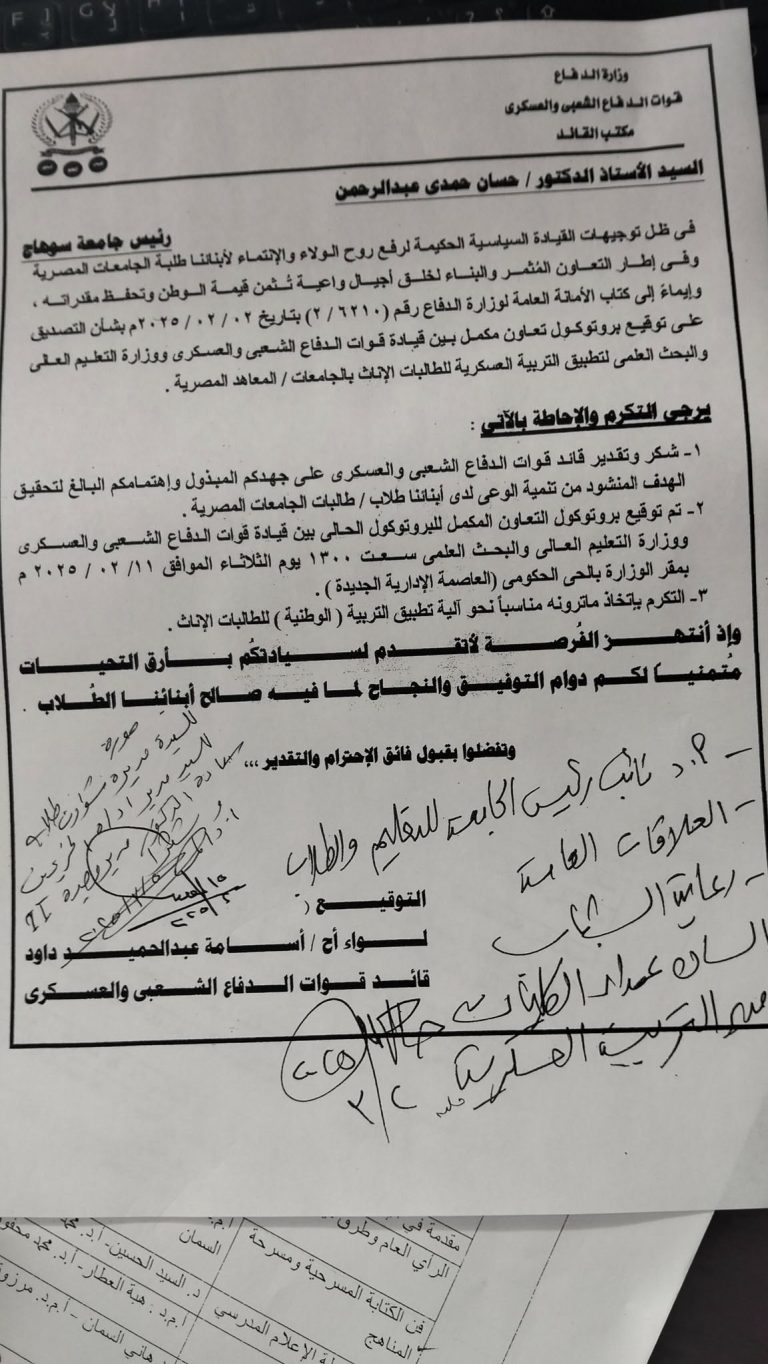 وزارة الدفاع
قوات الدفاع الشعبى والعسكرى
مكتب القائد
السيد الأستاذ الدكتور / حسان حمدى عبدالرحمن
رئيس جامعة سوهاج
فى ظل توجيهات القيادة السياسية الحكيمة لرفع روح الولاء والإنتماء لأبنائنا طلبة الجامعات المصرية
وفى إطار التعاون المُثمر والبناء لخلق أجيال واعية تُثمن قيمة الوطن وتحفظ مقدراته ،
وإيماءً إلى كتاب الأمانة العامة لوزارة الدفاع رقم (٦٢١٠ / ٢) بتاريخ ٠٢ / ٠٢ / ٢٠٢٥م بشأن التصديق
على توقيع بروتوكول تعاون مكمل بين قيادة قوات الدفاع الشعبى والعسكرى ووزارة التعليم العالى
والبحث العلمى لتطبيق التربية العسكرية للطالبات الإناث بالجامعات / المعاهد المصرية .
يرجى التكرم والإحاطة بالآتي :
١- شكر وتقدير قائد قوات الدفاع الشعبى والعسكرى على جهدكم المبذول وإهتمامكم البالغ لتحقيق
الهدف المنشود من تنمية الوعى لدى أبنائنا طلاب / طالبات الجامعات المصرية .
٢- تم توقيع بروتوكول التعاون المكمل للبروتوكول الحالى بين قيادة قوات الدفاع الشعبى والعسكرى
ووزارة التعليم العالى والبحث العلمى سعت ١٣٠٠ يوم الثلاثاء الموافق ١١ / ٠٢ / ٢٠٢٥ م
بمقر الوزارة بالحى الحكومى (العاصمة الإدارية الجديدة) .
٣- التكرم بإتخاذ ماترونه مناسباً نحو آلية تطبيق التربية ( الوطنية ) للطالبات الإناث .
وإذ أنتهز الفُرصة لأتقدم لسيادتكُم بأرق التحيات
مُتمنياً لكم دوام التوفيق والنجاح لما فيه صالح أبنائنا الطُلاب .
وتفضلوا بقبول فائق الإحترام والتقدير ،،،
صورة
- أ.د نائب رئيس الجامعة للتعليم والطلاب
- العلاقات العامة
- رعاية الشباب
السادة عمداء الكليات
مدير التربية العسكرية
التوقيع (
لواء أح / أسامة عبدالحميد داود
قائد قوات الدفاع الشعبى والعسكرى
مقدمة في
الرأي العام وطرق
السمان
فن الكتابة المسرحية ومسرحة
المناهج
د. السيد الحسين- أ.د.
الإعلام المدرسي
أ.م.د : هبة العطار- أ.د. محمد محفوظ
هاني السمان - أ.م.د. مرزوق